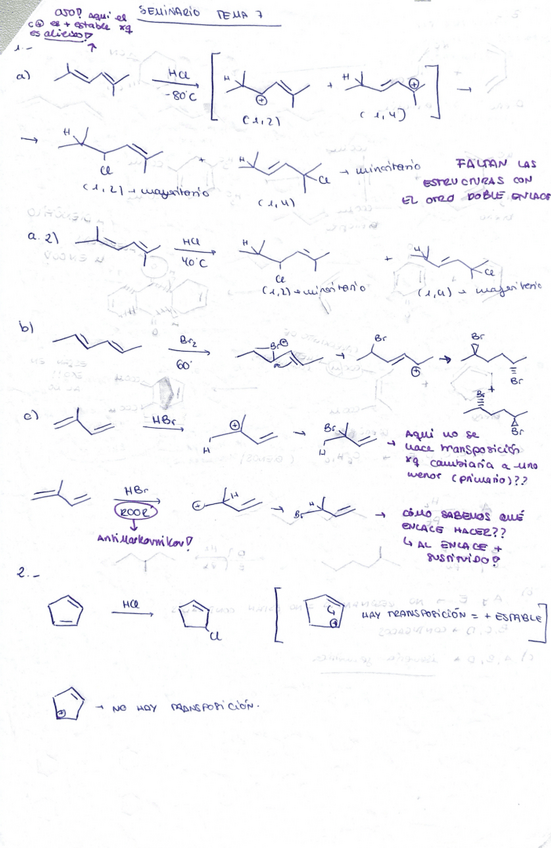 OJO? aquí el SEMINARIO TEMA 7
C⊕ es + estable xq
es alílico?
1.-
a) HCl
-80°C
H H
⊕ + ⊕
(1,2) (1,4)
H H
Cl + Cl → minoritario
(1,2) → mayoritario (1,4)
FALTAN LAS
ESTRUCTURAS CON
EL OTRO DOBLE ENLACE
a.2) HCl
40°C
H H
Cl + Cl
(1,2) → minoritario (1,4) → mayoritario
b) Br2
60°
Br⊕ Br ⊕ Br
Br
+
Br
Br
c) HBr
⊕ H
Br H
Aquí no se
hace transposición
xq cambiaría a uno
menor (primario)??
HBr
ROOR
Antimarkovnikov?
⊕ H
Br H
CÓMO SABEMOS QUÉ
ENLACE HACER??
↳ AL ENLACE +
SUSTITUIDO?
2.-
HCl
Cl
⊕ HAY TRANSPOSICIÓN = + ESTABLE
⊕ → NO HAY TRANSPOSICIÓN.